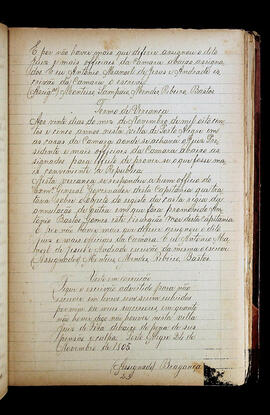 E por não haver mais que deferir assignou o dito
Juiz e mais officiaes da Camara abaixo assigna
dos. E eu Antonio Manoel de Jesus e Andrade es
crivão da Camara o escrevi.
(Assigds) Monteiro Sampaio Mendes Ribeiro Bastos
Termo de Vereança
Aos vinte dias do mez de Novembro de mil oito cen
tos e cinco annos nesta Villa de Porto Alegre em
as casas da Camara donde se achava o Juiz Pre
sidente e mais officiaes da Camara abaixo as
signados para effeito de prover-se o que fosse ma
is conveniente á Republica
Nesta vereança se respondeu a hum officio do
Exmo General Governador desta Capitania que tra
tava sobre o objecto do registo da carta regia de
annulação de outra em que fora promovido An
tonio Gomes neste Districto desta Capitania
E por não haver mais que deferir assignou o dito
Juiz e mais officiaes da Camara. E eu Antonio Ma
noel de Jesus e Andrade escrivão da mesma o escrevi
(Assignados) Monteiro Mendes Ribeiro Bastos.
Visto em correição
Fique o escrivão advertido para não
escrever em livros sem serem rubricados
por mim ou meus sucessores em quanto
não houver Juiz não poderá nesta villa
Juiz de Fóra debaixo de pena de sus
pensão e culpa. Porto Alegre 24 de
Novembro de 1805.
(Assignado) Bragança